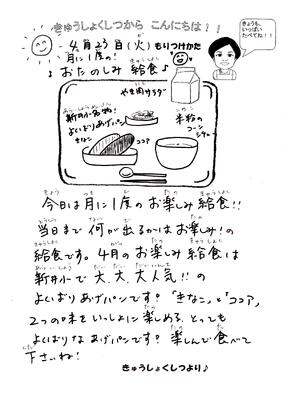 きゅうしょくしつから こんにちは！！
4月23日(火) もりつけかた
月に1度の!
♪おたのしみ 給食♪
きょうも、
いっぱい
たべてね！！
やき肉サラダ
新井小名物!
よくばりあげパン
きなこ
ココア
米粉の
コーン
シチュー
今日は月に1度のお楽しみ給食!!
当日まで何が出るかはお楽しみ!の
給食です。4月のお楽しみ給食は
新井小で大、大、大人気!!の
よくばりあげパンです?「きなこ」と「ココア」
2つの味をいっしょに楽しめる、とっても
よくばりなあげパンです? 楽しんで食べて
下さいね!
きゅうしょくしつより♪